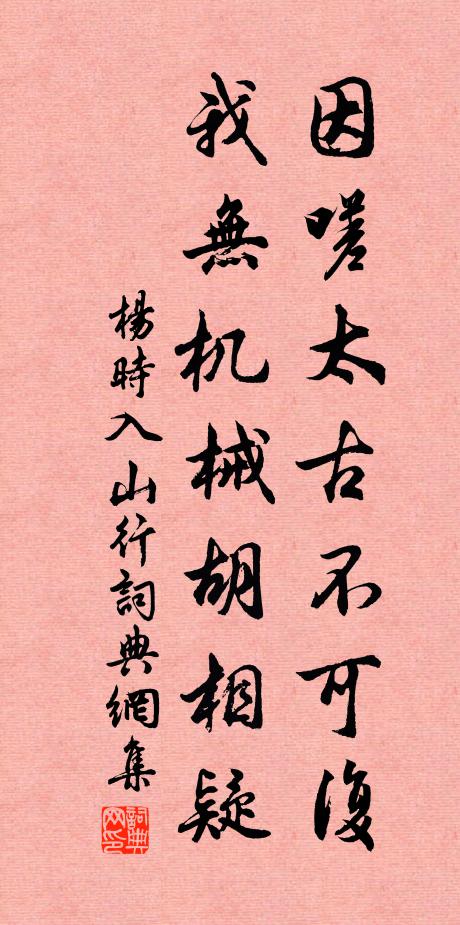 因嗟太古不可復
我無机械胡相疑
楊時入山行詞典網集
詞典網印